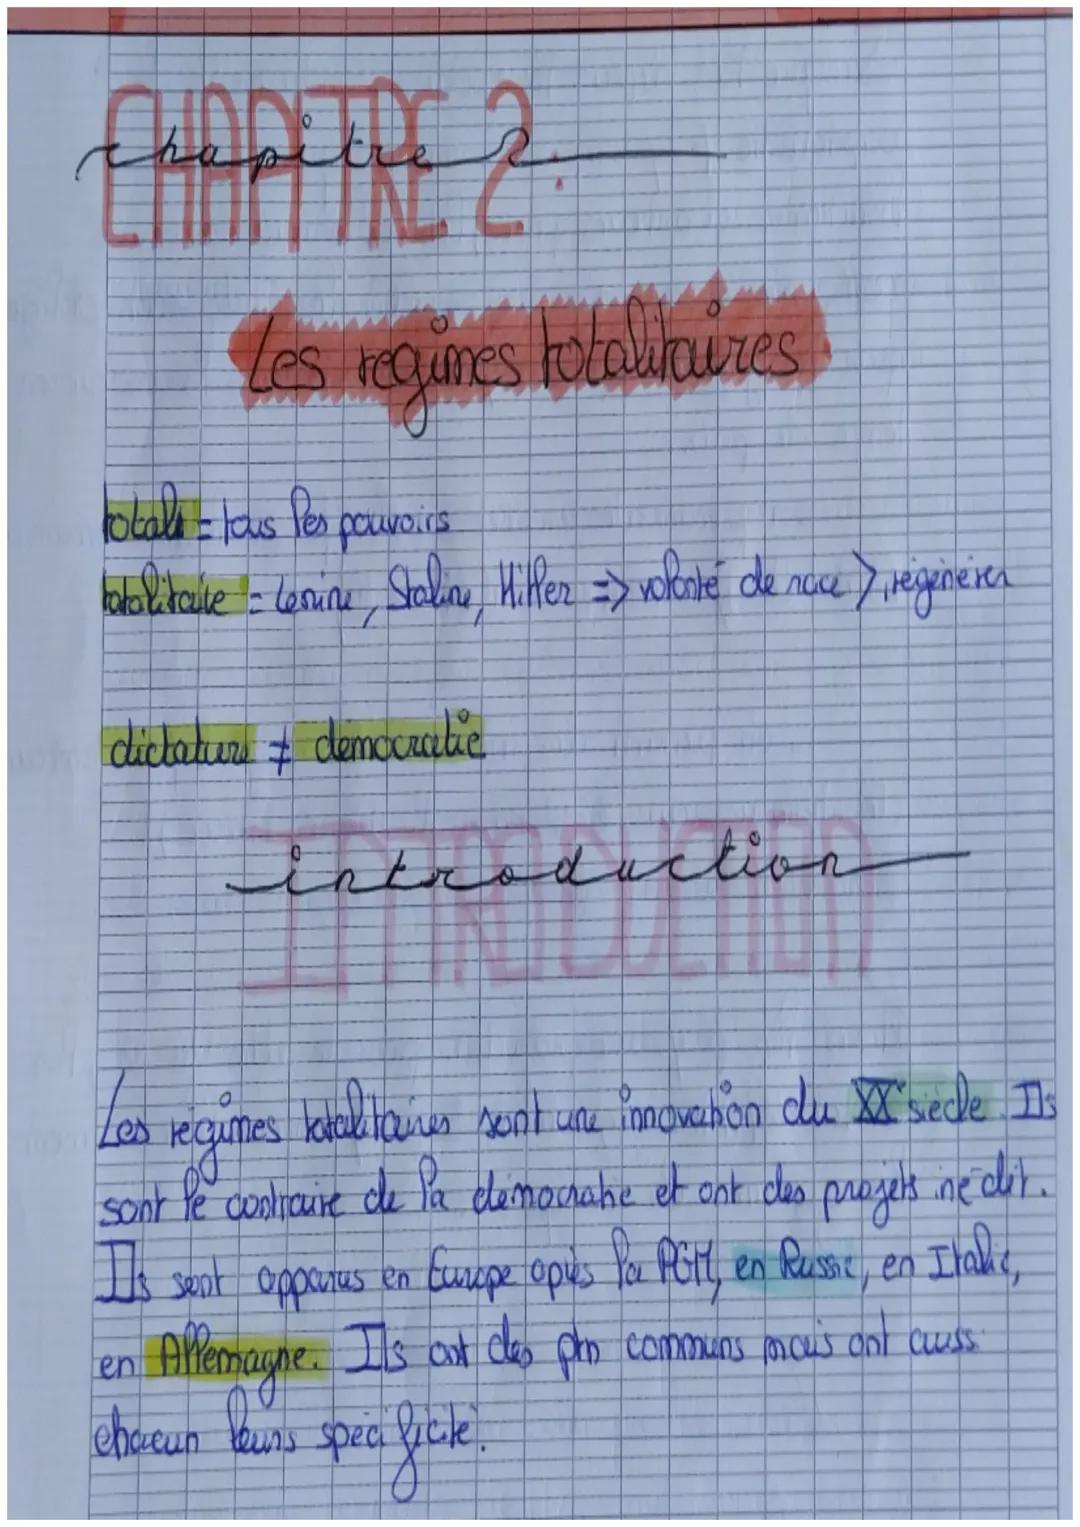 CHAPITRE 2
chapitre 2
Les regimes totalitaires
totali = tous les pouvoirs
totalitaire = Lenine, Staline, Hitler => volonté de race >, régénérer
dictature ≠ démocratie
INTRODUCTION
introduction
Les régimes totalitaires sont une innovation du XXe siècle. Ils
sont le contraire de la démocratie et ont des projets inédit.
Ils sont apparus en Europe après la PGM, en Russie, en Italie,
en Allemagne. Ils ont des communs mais ont aussi
chacun leurs spécificité.